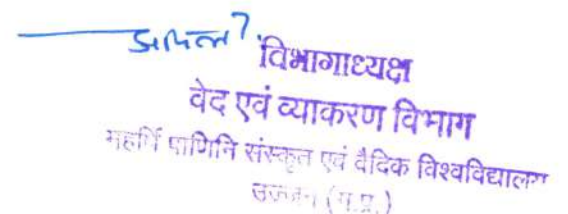 विभागाध्यक्ष
वेद एवं व्याकरण विभाग
महर्षि पाणिनि संस्कृत एवं वैदिक विश्वविद्यालय
उज्जैन (म.प्र.)